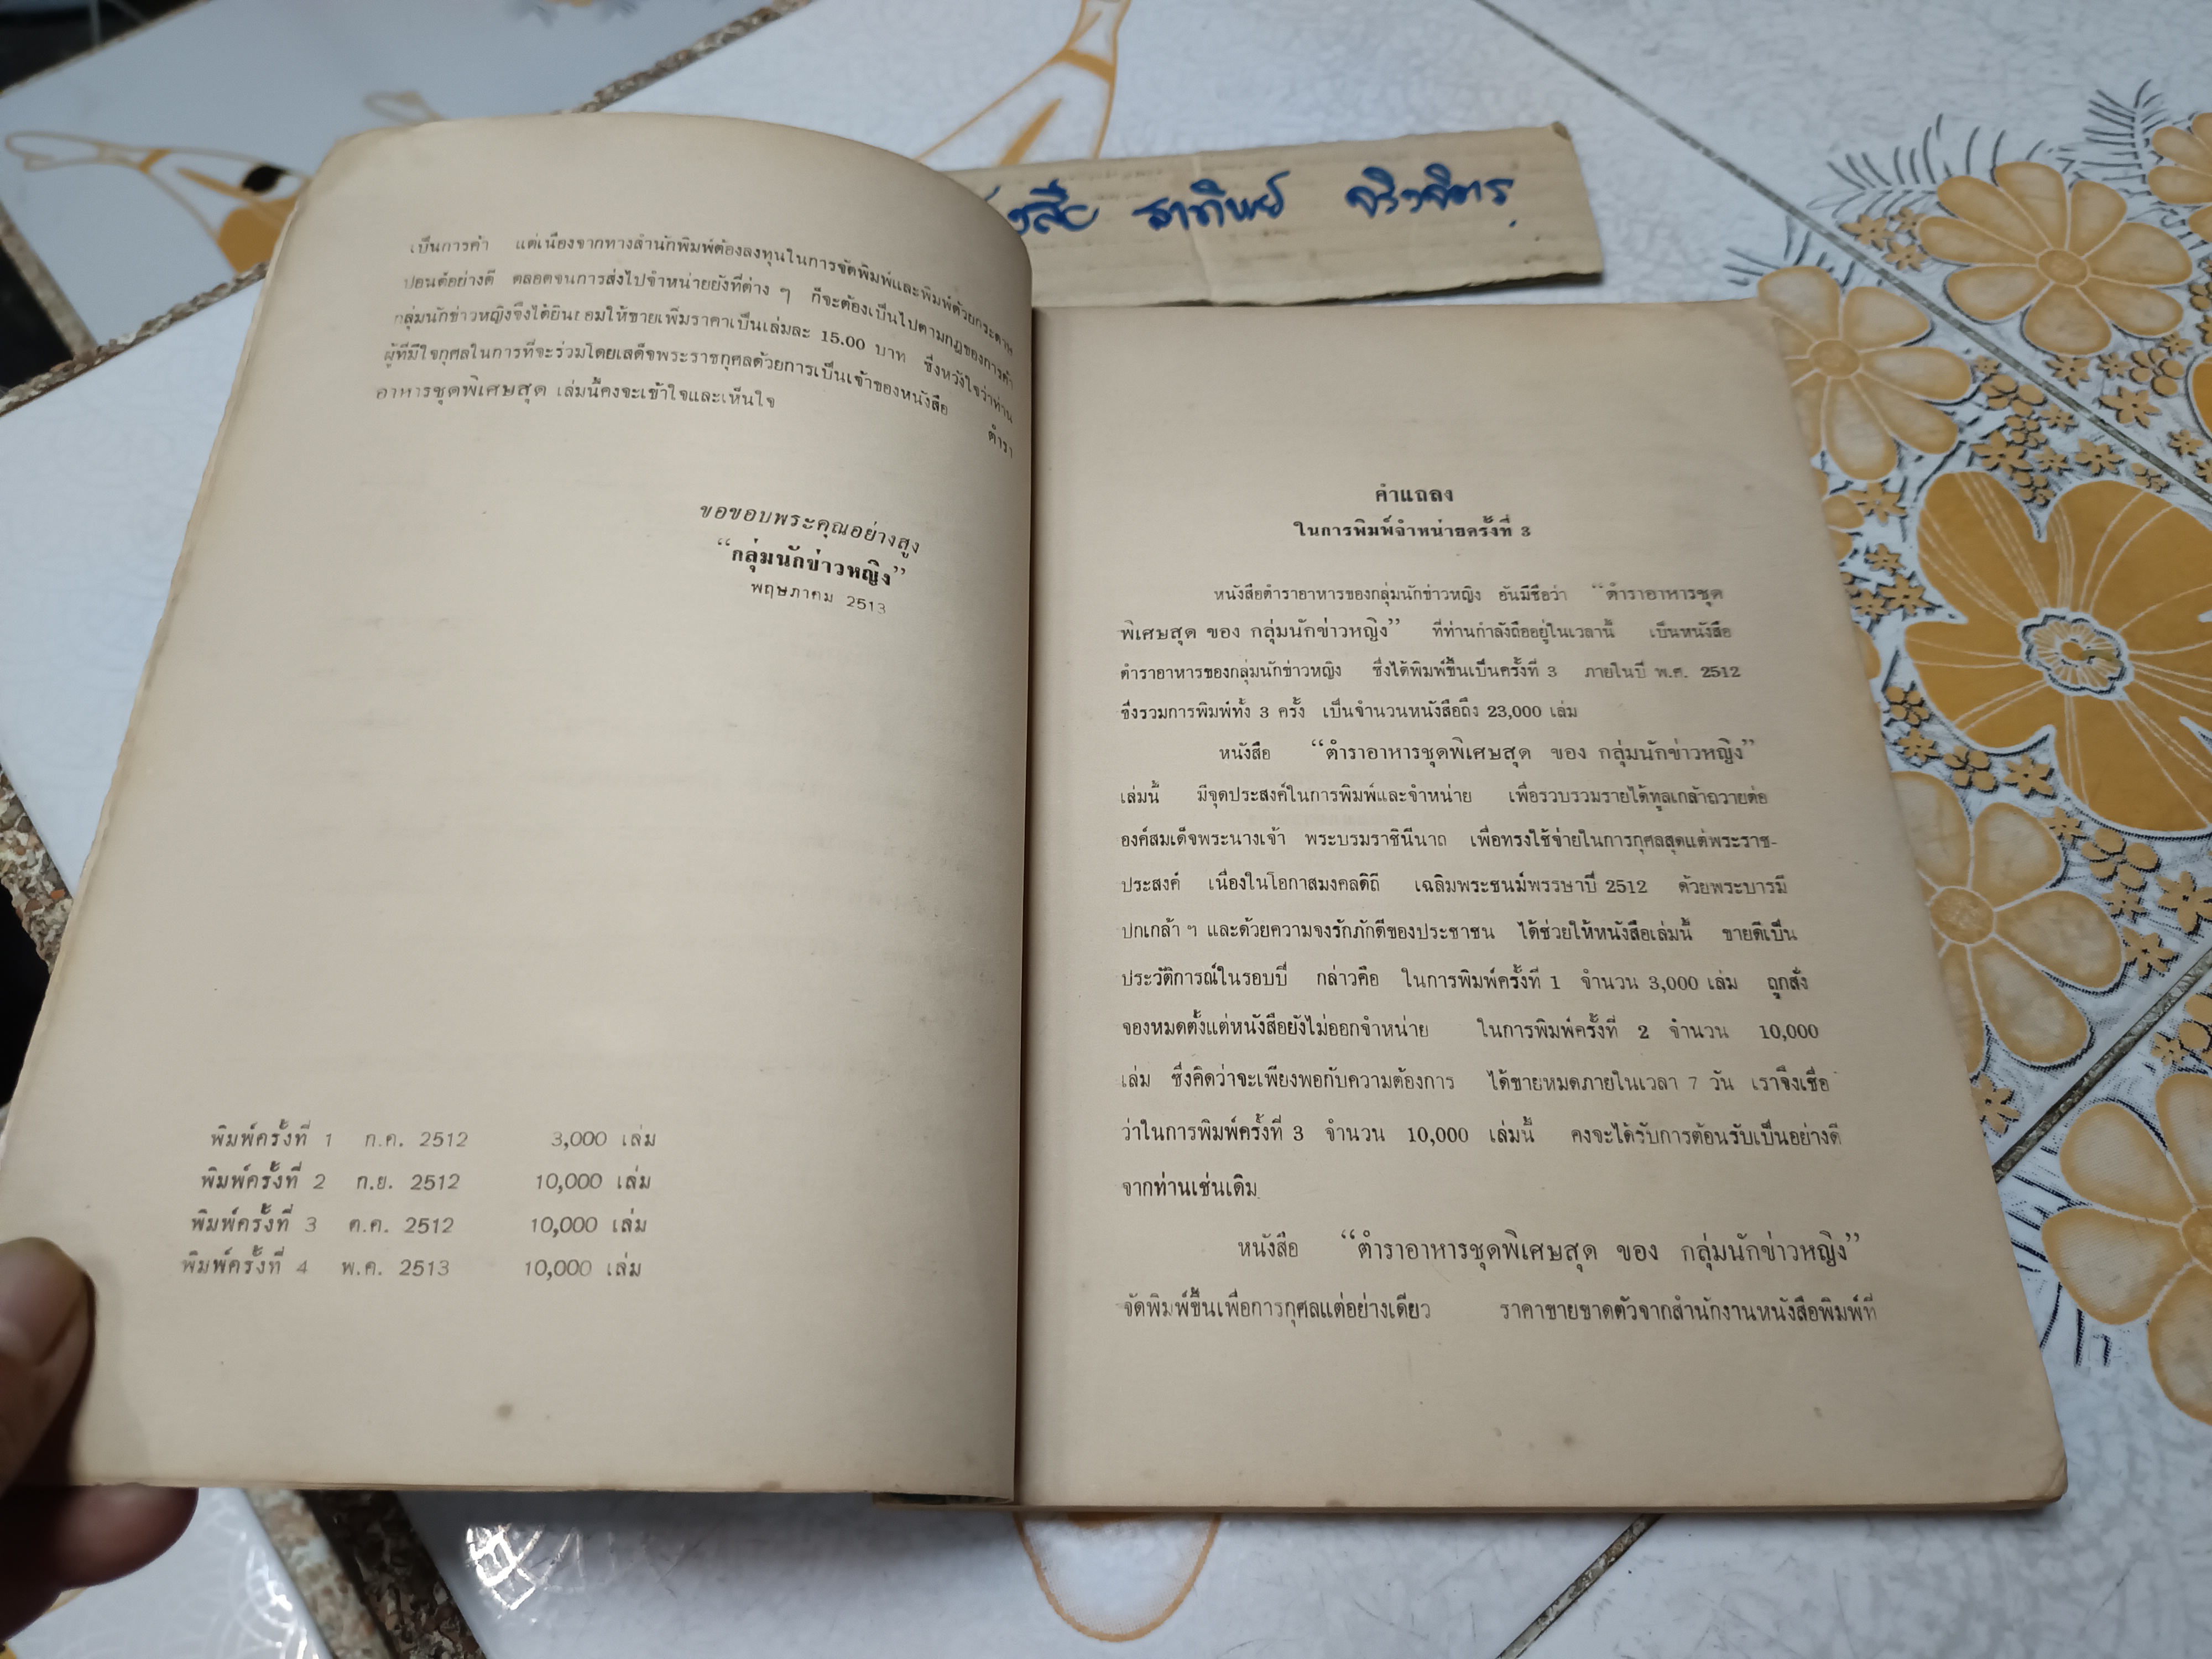 เป็นการค้า แต่เนื่องจากทางสำนักพิมพ์ต้องลงทุนในการจัดพิมพ์และพิมพ์ด้วยกระดาษ
ปอนด์อย่างดี ตลอดจนการส่งไปจำหน่ายยังที่ต่าง ๆ ก็จะต้องเป็นไปตามกฎของการค้า
กลุ่มนักข่าวหญิงจึงได้ยินยอมให้ขายเพิ่มราคาเป็นเล่มละ 15.00 บาท ซึ่งหวังใจว่าท่าน
ผู้ที่มีใจกุศลในการที่จะร่วมโดยเสด็จพระราชกุศลด้วยการเป็นเจ้าของหนังสือ ตำรา
อาหารชุดพิเศษสุด เล่มนี้คงจะเข้าใจและเห็นใจ
ขอขอบพระคุณอย่างสูง
“กลุ่มนักข่าวหญิง”
พฤษภาคม 2513
พิมพ์ครั้งที่ 1 ก.ค. 2512 3,000 เล่ม
พิมพ์ครั้งที่ 2 ก.ย. 2512 10,000 เล่ม
พิมพ์ครั้งที่ 3 ต.ค. 2512 10,000 เล่ม
พิมพ์ครั้งที่ 4 พ.ค. 2513 10,000 เล่ม
คำแถลง
ในการพิมพ์จำหน่ายครั้งที่ 3
หนังสือตำราอาหารของกลุ่มนักข่าวหญิง อันมีชื่อว่า “ตำราอาหารชุด
พิเศษสุด ของ กลุ่มนักข่าวหญิง” ที่ท่านกำลังถืออยู่ในเวลานี้ เป็นหนังสือ
ตำราอาหารของกลุ่มนักข่าวหญิง ซึ่งได้พิมพ์ขึ้นเป็นครั้งที่ 3 ภายในปี พ.ศ. 2512
ซึ่งรวมการพิมพ์ทั้ง 3 ครั้ง เป็นจำนวนหนังสือถึง 23,000 เล่ม
หนังสือ “ตำราอาหารชุดพิเศษสุด ของ กลุ่มนักข่าวหญิง”
เล่มนี้ มีจุดประสงค์ในการพิมพ์และจำหน่าย เพื่อรวบรวมรายได้ทูลเกล้าถวายต่อ
องค์สมเด็จพระนางเจ้า พระบรมราชินีนาถ เพื่อทรงใช้จ่ายในการกุศลสุดแต่พระราช-
ประสงค์ เนื่องในโอกาสมงคลดิถี เฉลิมพระชนม์พรรษาปี 2512 ด้วยพระบารมี
ปกเกล้า ฯ และด้วยความจงรักภักดีของประชาชน ได้ช่วยให้หนังสือเล่มนี้ ขายดีเป็น
ประวัติการณ์ในรอบปี กล่าวคือ ในการพิมพ์ครั้งที่ 1 จำนวน 3,000 เล่ม ถูกสั่ง
จองหมดตั้งแต่หนังสือยังไม่ออกจำหน่าย ในการพิมพ์ครั้งที่ 2 จำนวน 10,000
เล่ม ซึ่งคิดว่าจะเพียงพอกับความต้องการ ได้ขายหมดภายในเวลา 7 วัน เราจึงเชื่อ
ว่าในการพิมพ์ครั้งที่ 3 จำนวน 10,000 เล่มนี้ คงจะได้รับการต้อนรับเป็นอย่างดี
จากท่านเช่นเดิม
หนังสือ “ตำราอาหารชุดพิเศษสุด ของ กลุ่มนักข่าวหญิง”
จัดพิมพ์ขึ้นเพื่อการกุศลแต่อย่างเดียว ราคาขายขาดตัวจากสำนักงานหนังสือพิมพ์ที่